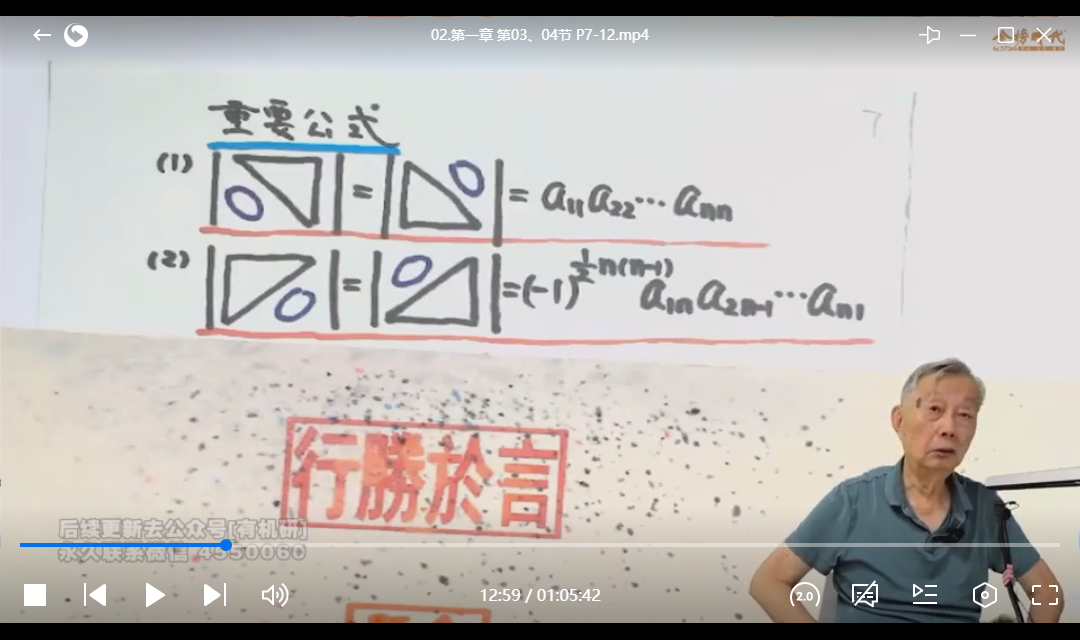 02.第一章 第03、04节 P7-12.mp4
金榜时代
7
重要公式
(1) = = a₁₁a₂₂⋯aₙₙ
(2) = = (-1)^{½n(n-1)} a₁ₙa₂ₙ₋₁⋯aₙ₁
行勝於言
后续更新去公众号[有机研]
永久联系微信 4550060
12:59 / 01:05:42
2.0